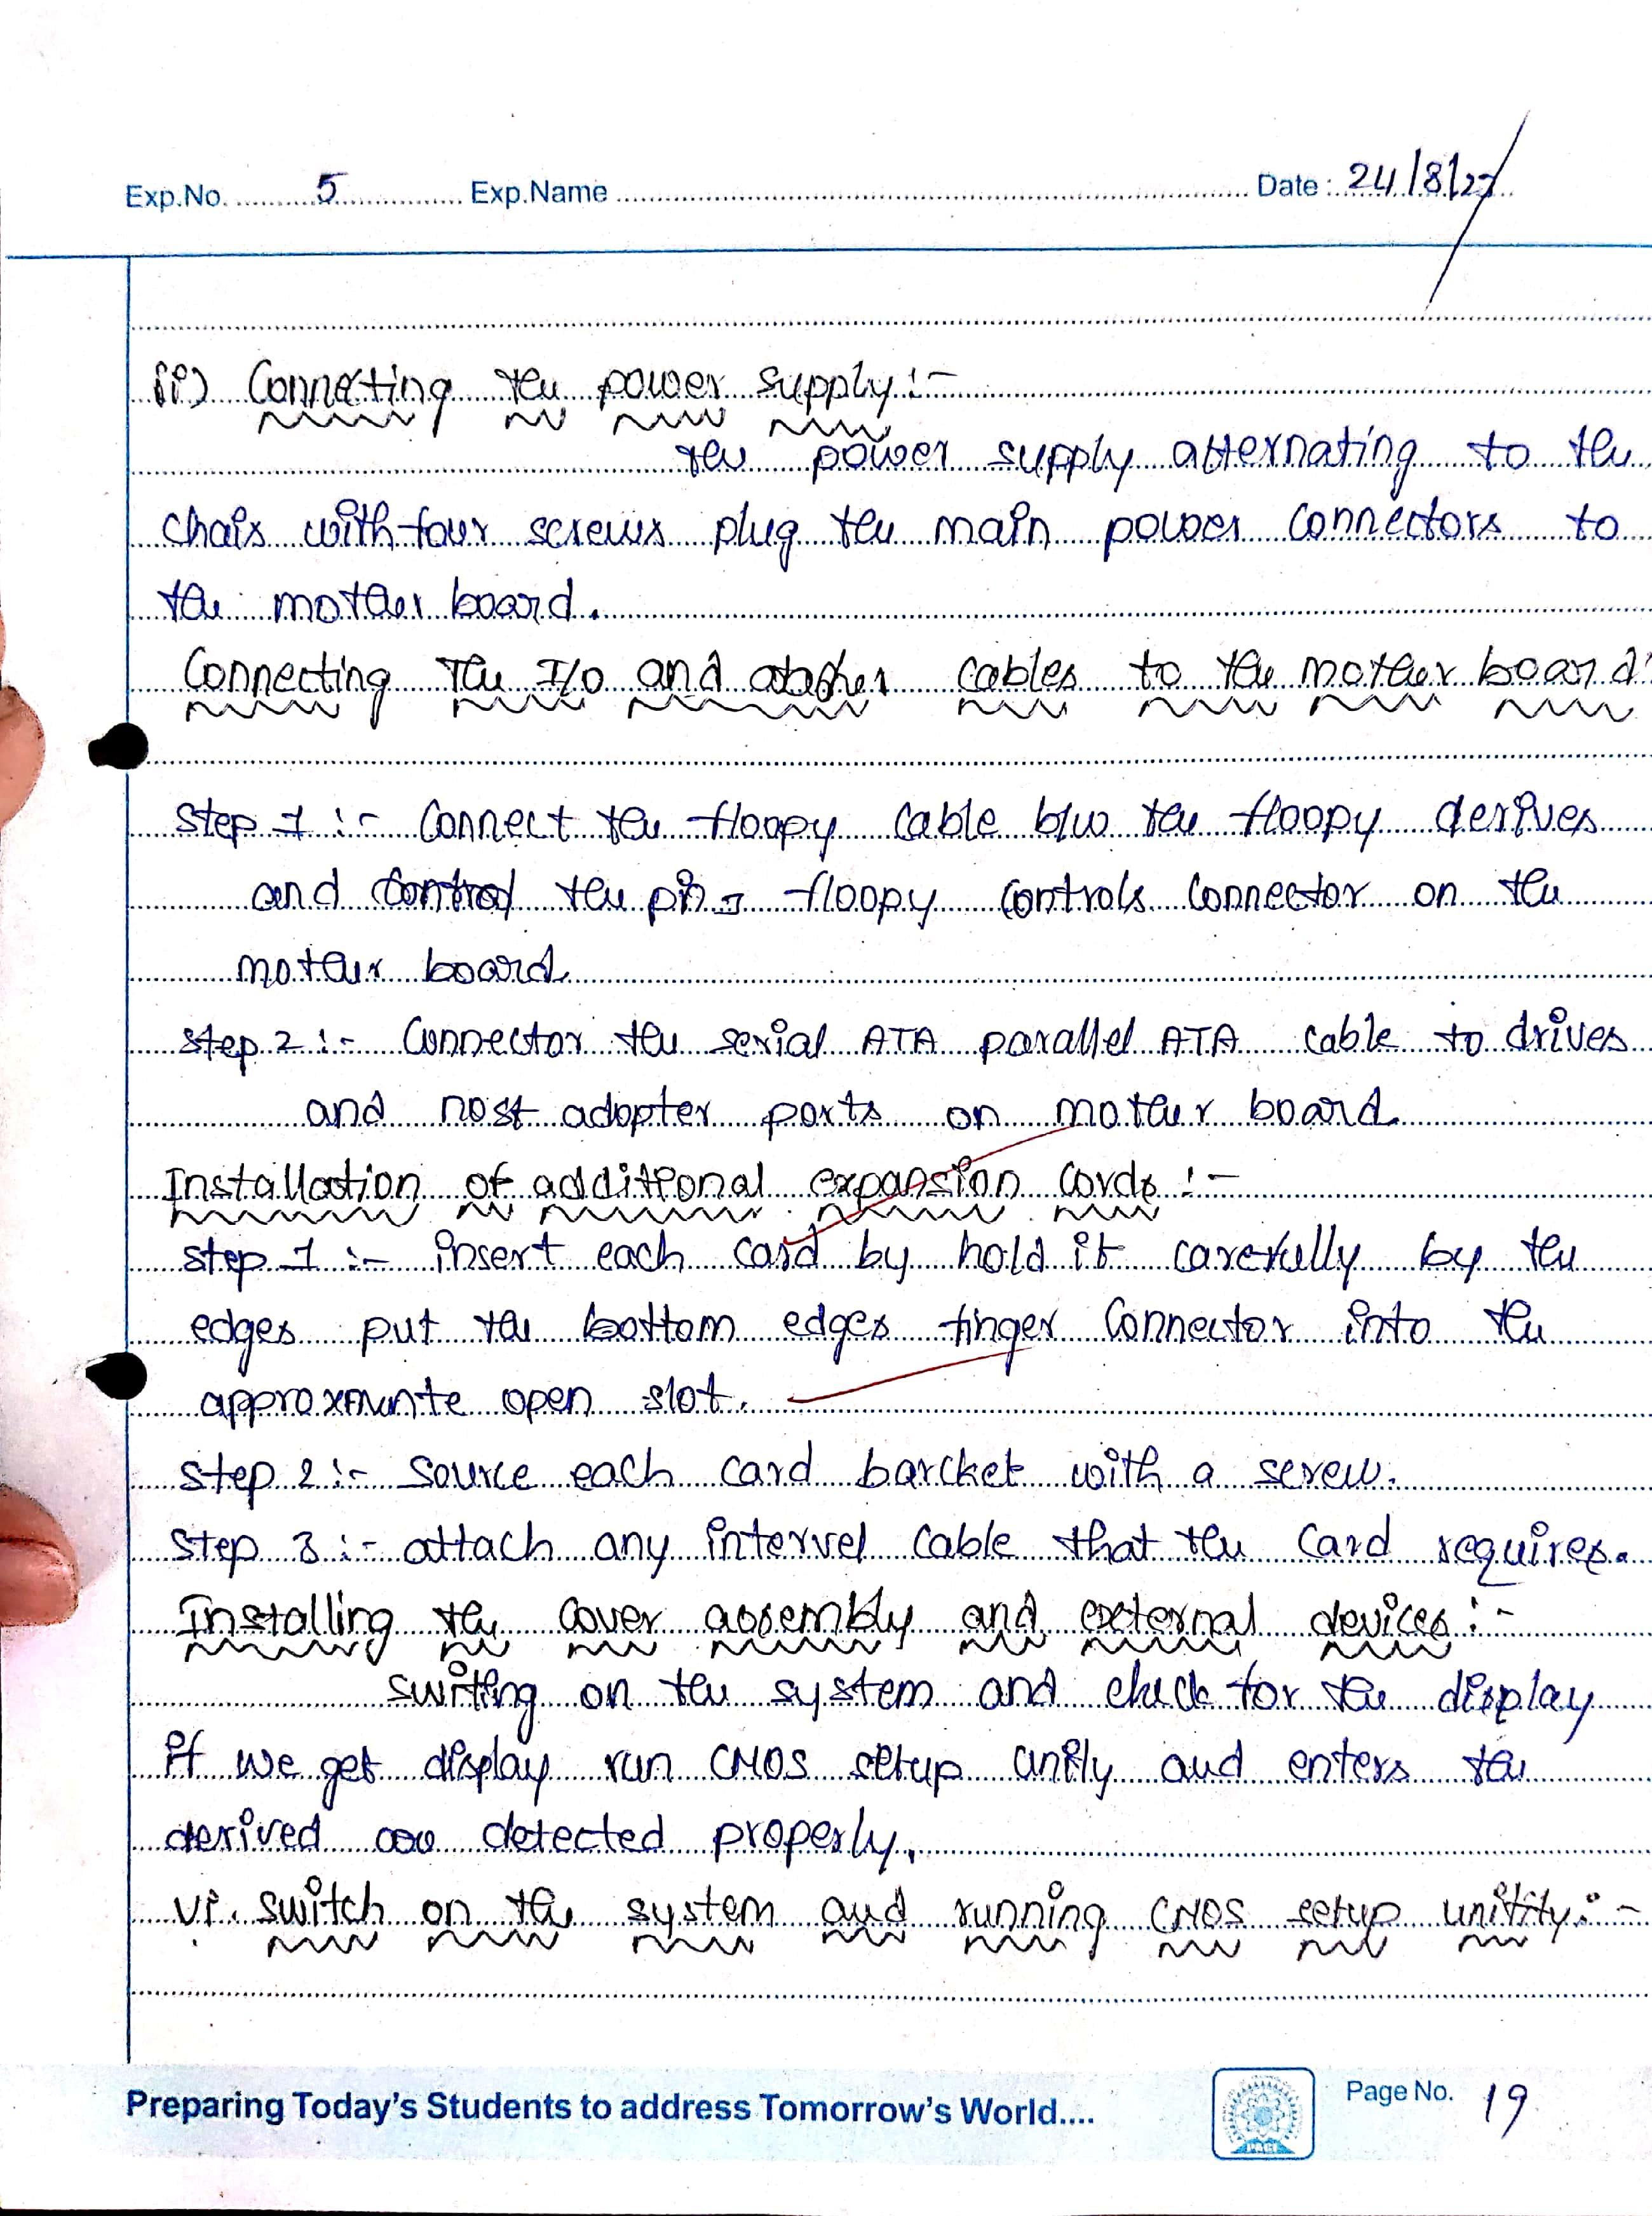 Exp.No. 5 Exp.Name Date : 24/8/22
ii) Connecting the power supply :-
the power supply atternating to the
chais with four screws plug the main power connectors to
the mother board.
Connecting The I/O and other cables to the mother board:
Step 1 :- Connect the floopy cable b/w the floopy derives
and control the pin 1 floopy controls connector on the
mother board
step 2 :- Connector the serial ATA parallel ATA cable to drives
and nost adopter ports on mother board
Installation of additional expansion Cards :-
step 1 :- insert each card by hold it carefully by the
edges put the bottom edges finger Connector into the
approxmnte open slot.
step 2 :- Source each card barcket with a screw.
Step 3 :- attach any intervel cable that the Card requires.
Installing the Cover assembly and external devices :-
switing on the system and check for the display
if we get display run CMOS setup and enters the
derived are detected properly.
vi. switch on the system and running CMOS setup unitity :-
Preparing Today's Students to address Tomorrow's World....
PACE
Page No. 19